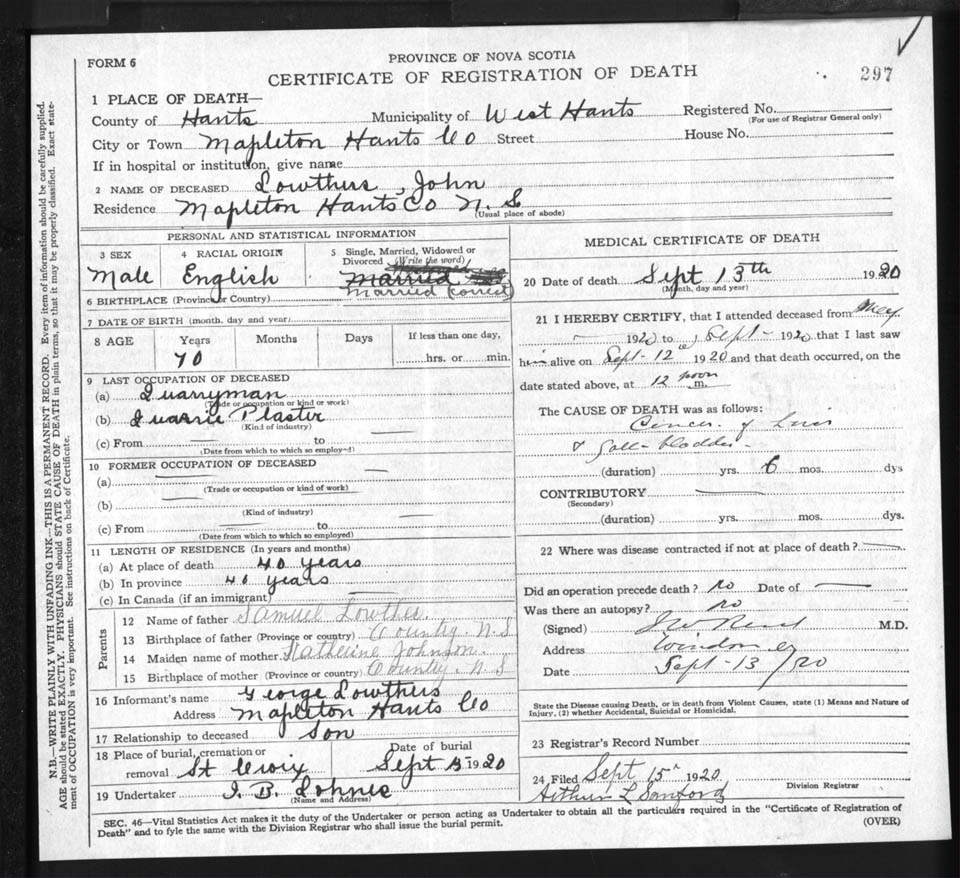 FORM 6
PROVINCE OF NOVA SCOTIA
CERTIFICATE OF REGISTRATION OF DEATH
297
1 PLACE OF DEATH—
County of Hants Municipality of West Hants Registered No.
(For use of Registrar General only)
City or Town Mapleton Hants Co Street House No.
If in hospital or institution, give name
2 NAME OF DECEASED Lowthers, John
Residence Mapleton Hants Co N. S
(Usual place of abode)
PERSONAL AND STATISTICAL INFORMATION
3 SEX 4 RACIAL ORIGIN 5 Single, Married, Widowed or
Divorced (Write the word)
Male English Married
Married (correct)
6 BIRTHPLACE (Province or Country)
7 DATE OF BIRTH (month, day and year)
8 AGE Years Months Days If less than one day,
70 hrs. or min.
9 LAST OCCUPATION OF DECEASED
(a) Quarryman
(Trade or occupation or kind or work)
(b) Quarrie Plaster
(Kind of industry)
(c) From — to —
(Date from which to which so employed)
10 FORMER OCCUPATION OF DECEASED
(a) —
(Trade or occupation or kind of work)
(b) —
(Kind of industry)
(c) From — to —
(Date from which to which so employed)
11 LENGTH OF RESIDENCE (In years and months)
(a) At place of death 40 years
(b) In province 40 years
(c) In Canada (if an immigrant) —
Parents
12 Name of father Samuel Lowthes
13 Birthplace of father (Province or country) Country. N.S
14 Maiden name of mother Katherine Johnson.
15 Birthplace of mother (Province or country) Country. N.S
16 Informant's name George Lowthers
Address Mapleton Hants Co
17 Relationship to deceased Son
18 Place of burial, cremation or Date of burial
removal St Croix Sept 15 1920
19 Undertaker I. B. Lohnes
(Name and Address)
MEDICAL CERTIFICATE OF DEATH
20 Date of death Sept 13th 1920
(Month, day and year)
21 I HEREBY CERTIFY, that I attended deceased from May
- 1920 to Sept - 1920 that I last saw
him alive on Sept - 12 1920 and that death occurred, on the
date stated above, at 12 noon m.
The CAUSE OF DEATH was as follows:
Cancer of Liver
& Gall-bladder -
(duration) yrs. 6 mos. dys
CONTRIBUTORY —
(Secondary)
(duration) yrs. mos. dys.
22 Where was disease contracted if not at place of death? —
Did an operation precede death? no Date of —
Was there an autopsy? no
(Signed) M.D.
Address Windsor
Date Sept - 13/20
State the Disease causing Death, or in death from Violent Causes, state (1) Means and Nature of
Injury, (2) whether Accidental, Suicidal or Homicidal.
23 Registrar's Record Number
24 Filed Sept 15th 1920
Arthur L Sanford Division Registrar
SEC. 46—Vital Statistics Act makes it the duty of the Undertaker or person acting as Undertaker to obtain all the particulars required in the "Certificate of Registration of
Death" and to fyle the same with the Division Registrar who shall issue the burial permit. (OVER)
N.B.—WRITE PLAINLY WITH UNFADING INK—THIS IS A PERMANENT RECORD. Every item of information should be carefully supplied.
AGE should be stated EXACTLY. PHYSICIANS should STATE CAUSE OF DEATH in plain terms, so that it may be properly classified. Exact state-
ment of OCCUPATION is very important. See instructions on back of Certificate.